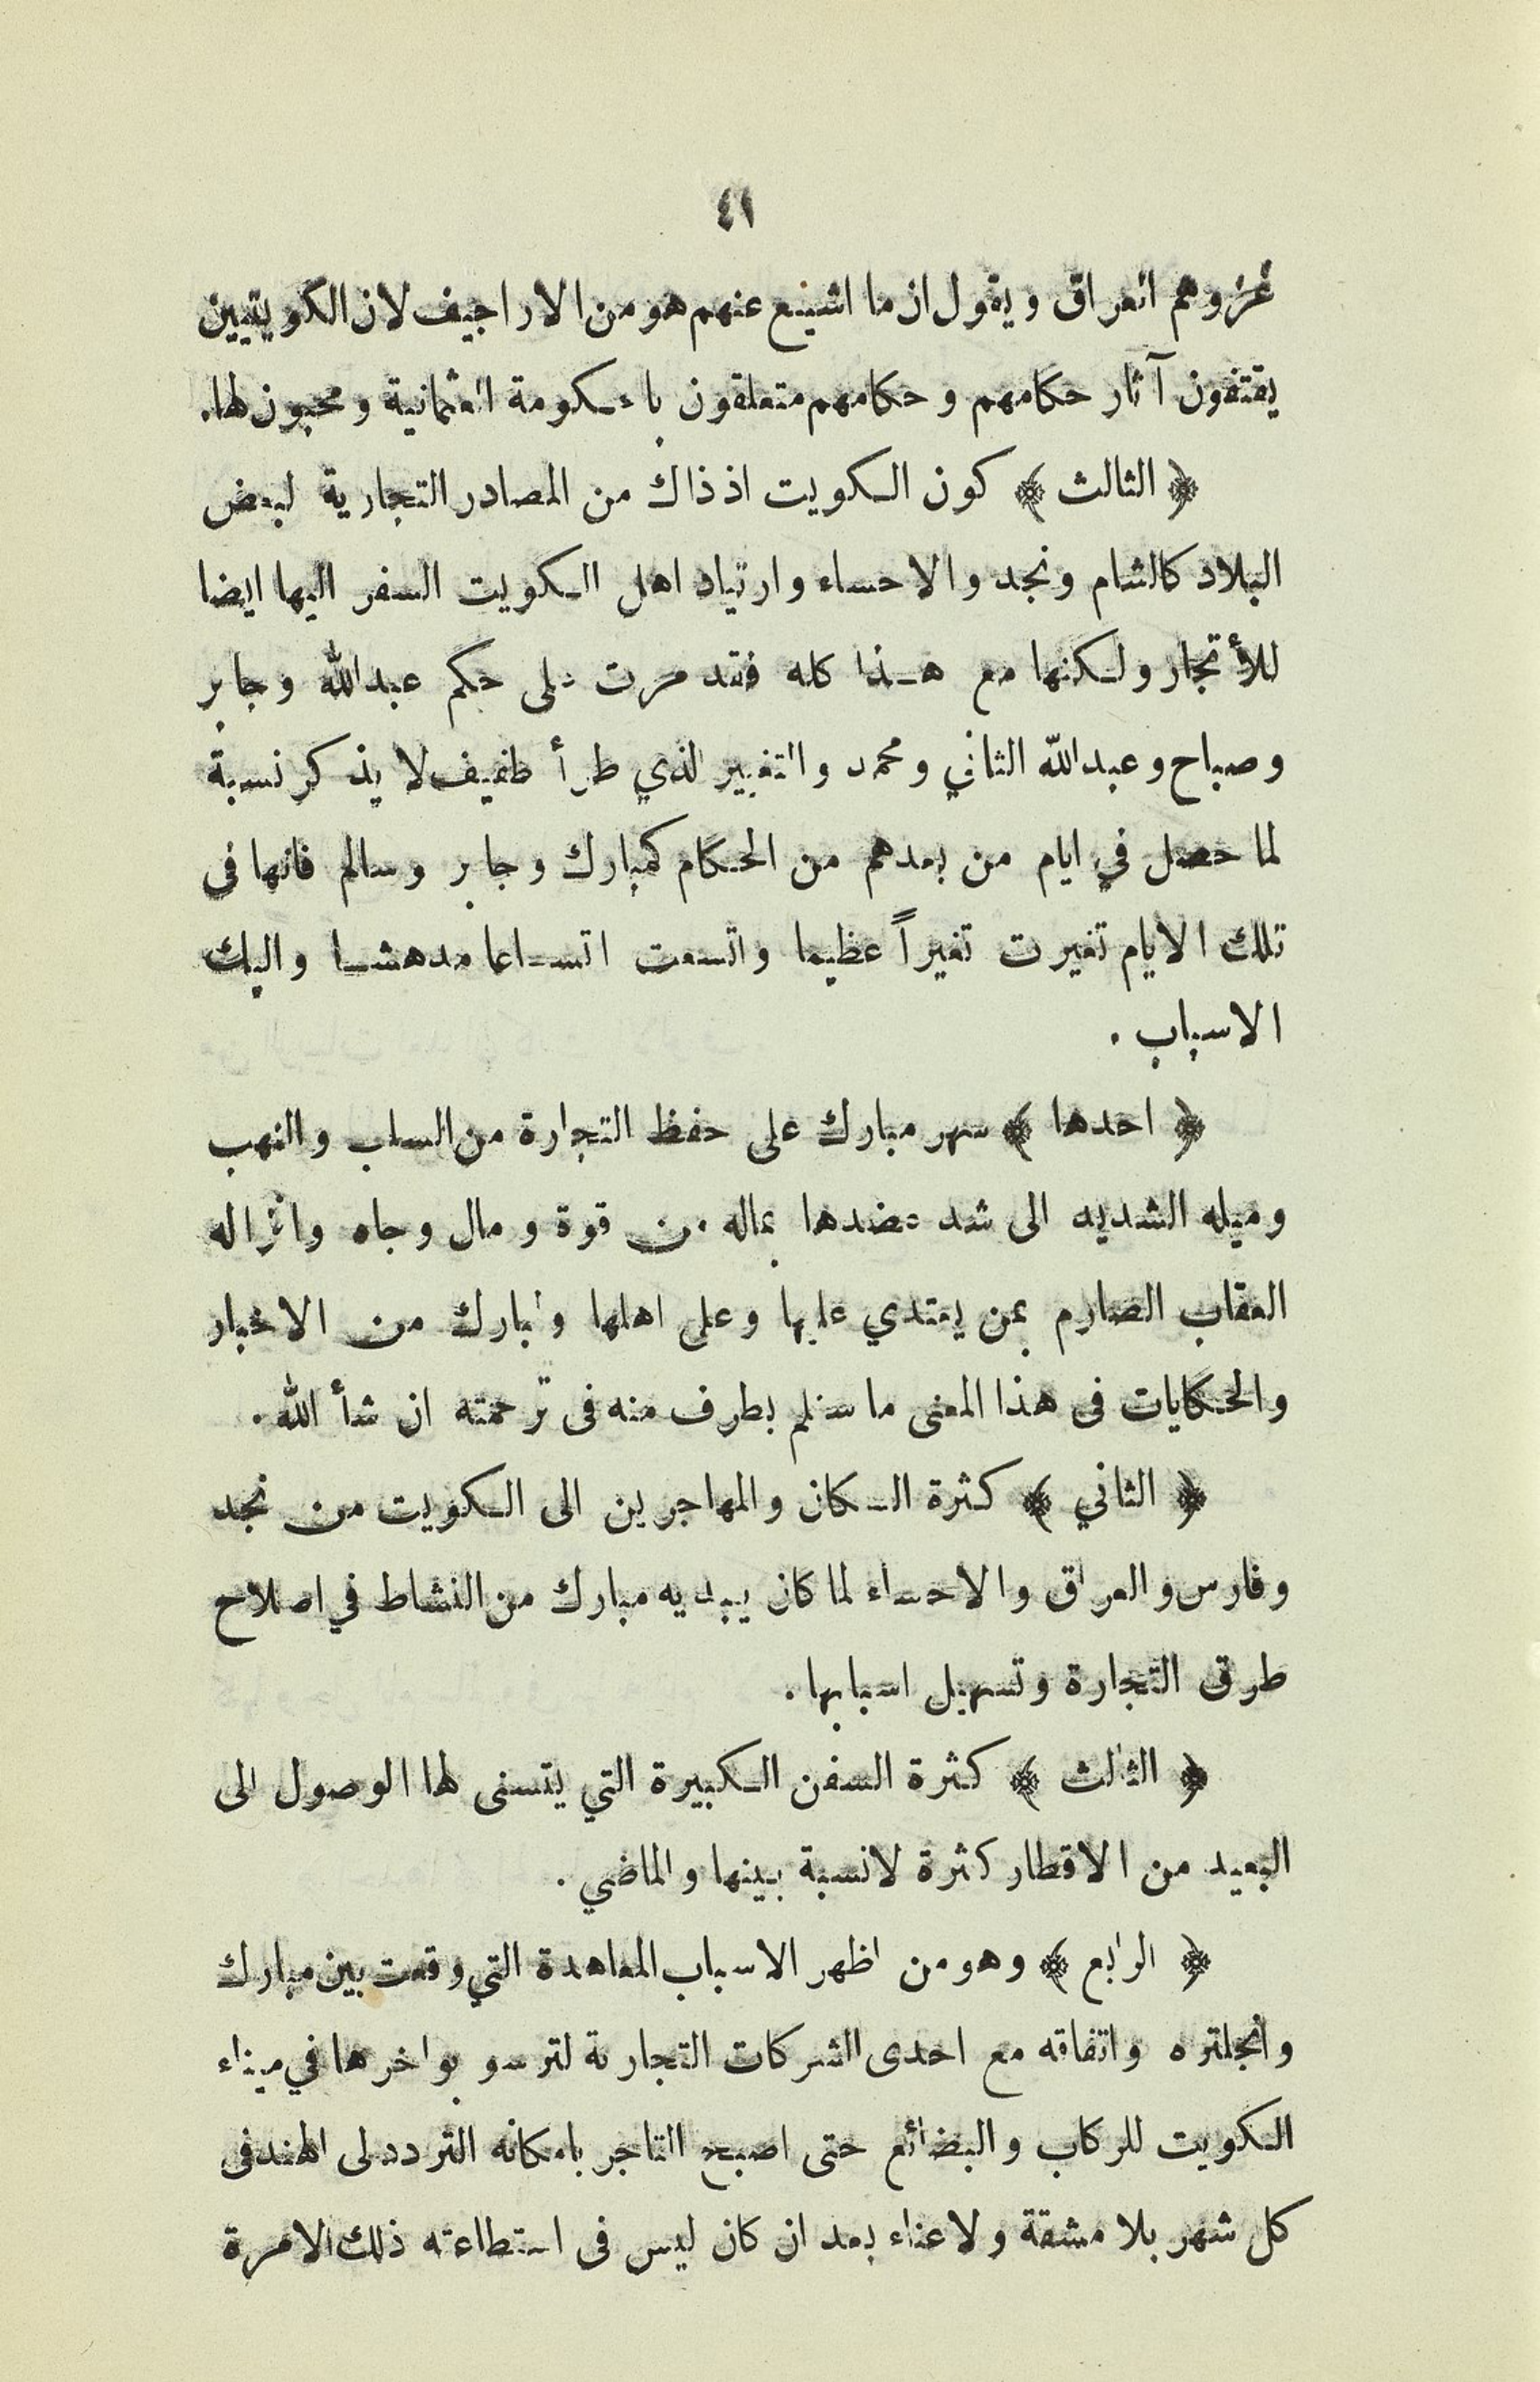 ٤١
غزوهم العراق ويقول ان ما اشيع عنهم هو من الاراجيف لان الكويتيين
يقتفون آثار حكامهم وحكامهم متعلقون بالحكومة العثمانية ومحبون لها.
﴿ الثالث ﴾ كون الكويت اذ ذاك من المصادر التجارية لبعض
البلاد كالشام ونجد والاحساء وارتياد اهل الكويت السفر اليها ايضا
للأتجار ولكنها مع هذا كله فقد مرت على حكم عبدالله وجابر
وصباح وعبدالله الثاني ومحمد والتغيير الذي طرأ طفيف لا يذكر نسبة
لما حصل في ايام من بعدهم من الحكام كمبارك وجابر وسالم فانها فى
تلك الايام تغيرت تغيراً عظيما واتسعت اتساعا مدهشا واليك
الاسباب .
﴿ احدها ﴾ سهر مبارك على حفظ التجارة من السلب والنهب
وميله الشديد الى شد عضدها بماله من قوة ومال وجاه وانزاله
العقاب الصارم بمن يعتدي عليها وعلى اهلها ولمبارك من الاخبار
والحكايات فى هذا المعنى ما سنلم بطرف منه فى ترجمته ان شأ الله.
﴿ الثاني ﴾ كثرة السكان والمهاجرين الى الكويت من نجد
وفارس والعراق والاحساء لما كان يبديه مبارك من النشاط في اصلاح
طرق التجارة وتسهيل اسبابها.
﴿ الثالث ﴾ كثرة السفن الكبيرة التي يتسنى لها الوصول الى
البعيد من الاقطار كثرة لانسبة بينها والماضي.
﴿ الرابع ﴾ وهو من اظهر الاسباب المعاهدة التي وقعت بين مبارك
وانجلتره واتفاقه مع احدى الشركات التجارية لترسو بواخرها في ميناء
الكويت للركاب والبضائع حتى اصبح التاجر بامكانه التردد الى الهند فى
كل شهر بلا مشقة ولا عناء بعد ان كان ليس فى استطاعته ذلك الا مرة